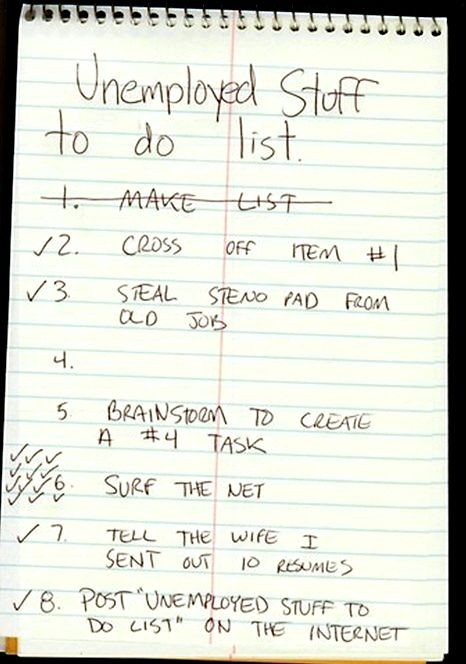 Unemployed Stuff
to do list.
1. MAKE LIST
✓2. CROSS OFF ITEM #1
✓3. STEAL STENO PAD FROM
OLD JOB
4.
5. BRAINSTORM TO CREATE
A #4 TASK
✓✓✓✓✓✓✓✓✓✓✓✓6. SURF THE NET
✓7. TELL THE WIFE I
SENT OUT 10 RESUMES
✓8. POST "UNEMPLOYED STUFF TO
DO LIST" ON THE INTERNET